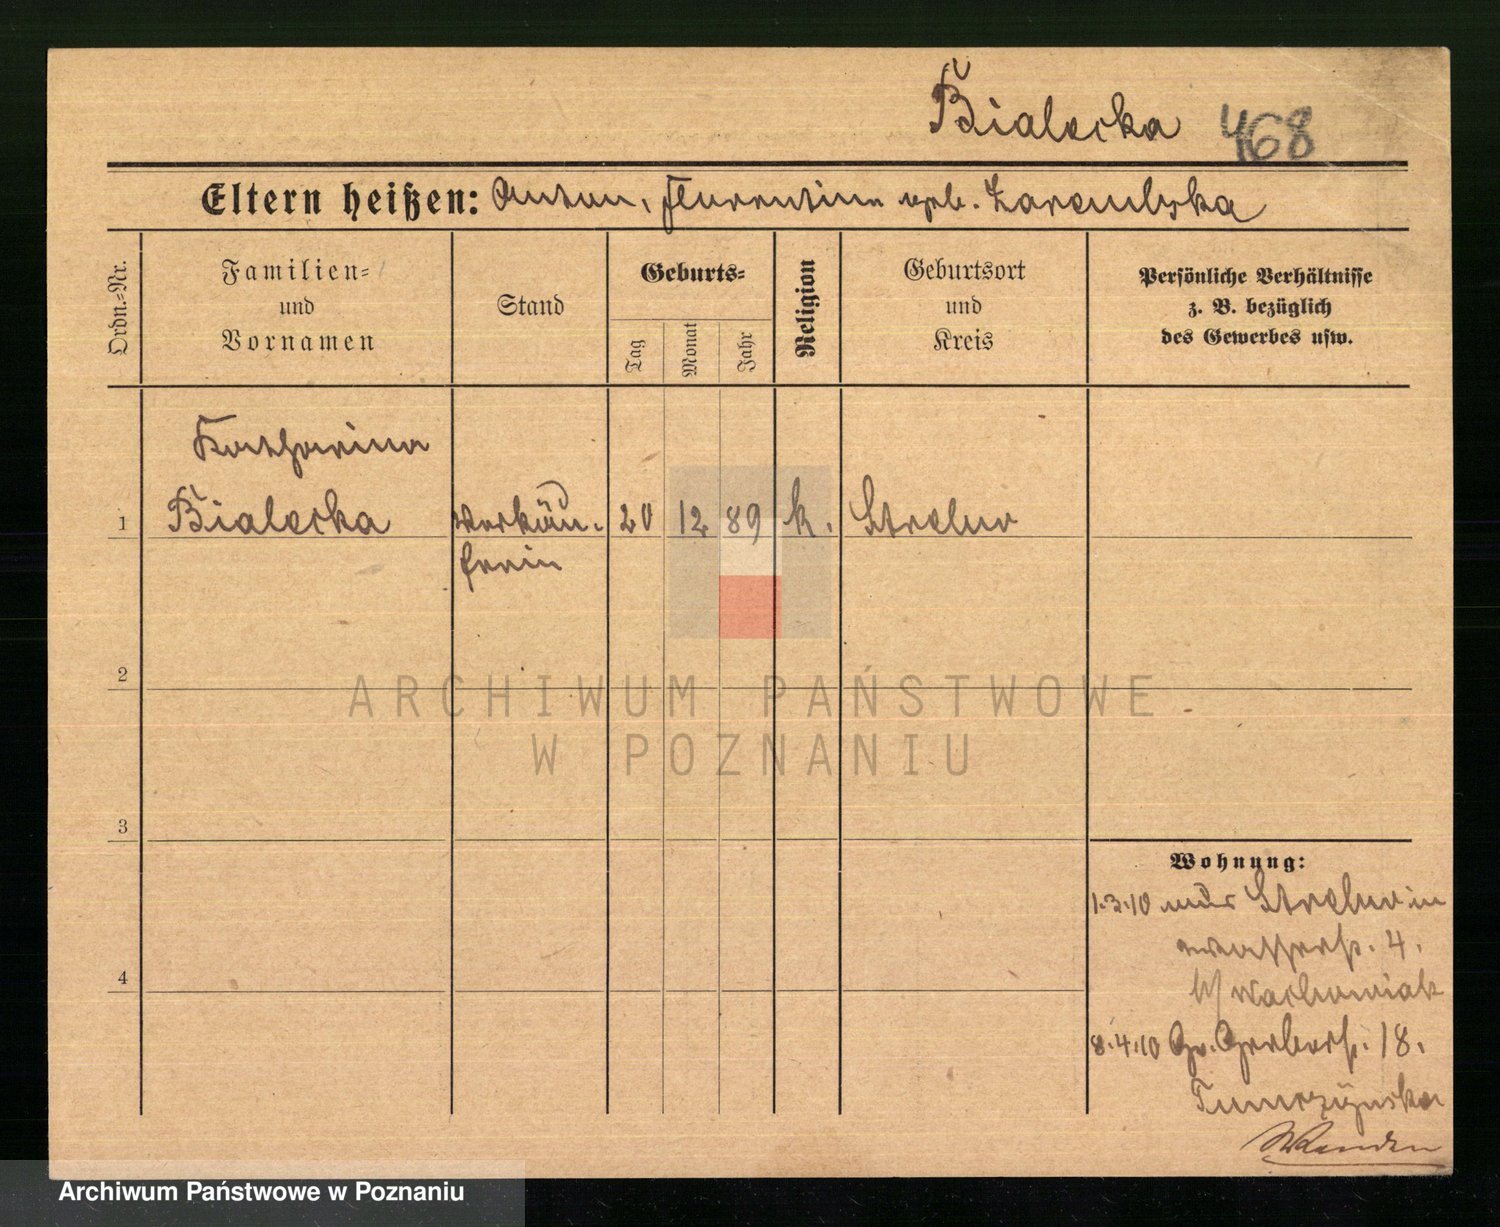 Bialecka 468
Eltern heißen: Anton, Florentine geb. Zarembska
Ordn.=Nr.
Familien=
und
Vornamen
Stand
Geburts=
Tag
Monat
Jahr
Religion
Geburtsort
und
Kreis
Persönliche Verhältnisse
z. B. bezüglich
des Gewerbes usw.
Katharina
1 Bialecka Verkäu- 20 12 89 k. Strelno
ferin
2
ARCHIWUM PAŃSTWOWE
W POZNANIU
3
Wohnung:
1.3.10 aus Strelno in
Wasserstr. 4.
b/ Wachowiak
4
8.4.10 Gr. Gerberstr. 18.
Archiwum Państwowe w Poznaniu